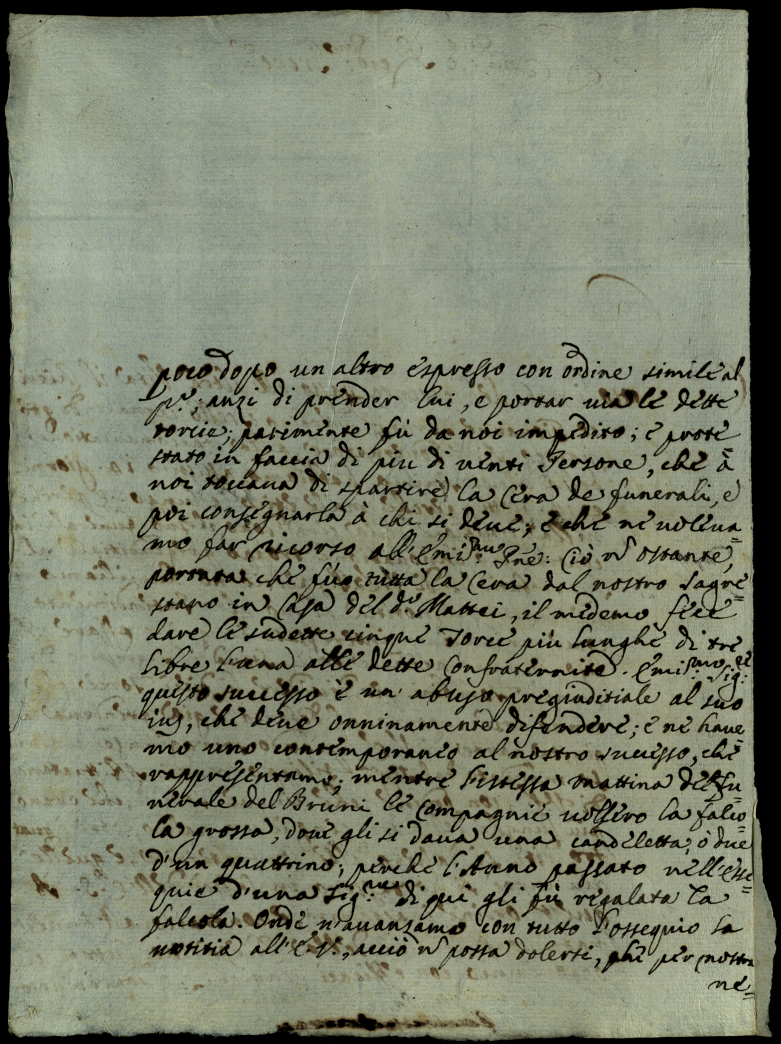 poco dopo un altro espresso con ordine simile al
p.º; anzi di prender lui, e portar via le dette
torcie; parimente fù da noi impedito; e prote=
stato in faccia di piu di venti Persone, che à
noi toccava di spartire la Cera de funerali, e
poi consegnarla à chi si deve; e che ne voleva=
mo far ricorso all'Emi:mo Pne: Ciò nº ostante,
portata che fù tutta la Cera dal nostro Sagre=
stano in Casa del d.º Mattei, il medemo fece
dare le sudette cinque Torce più lunghe di tre
libre l'una alle dette Confraternite. Emi:mo Sig:re
questo successo è un' abuso pregiuditiale al suo
ius, che deve onninamente difendere; e ne have=
mo uno contemporaneo al nostro successo, che
rappresentiamo; mentre l'istessa mattina del fu=
nerale del Bruni le Compagnie volsero la falco=
la grossa, dove gli si dava una candeletta, ò due
d'un quattrino; perche l'Anno passato nell'esse=
quie d'una Sig.ra di qui gli fù regalata la
falcola. Onde n'avanzamo con tutto l'ossequio la
notitia all' E. V., acciò nº possa dolersi, che per nostra
ne=